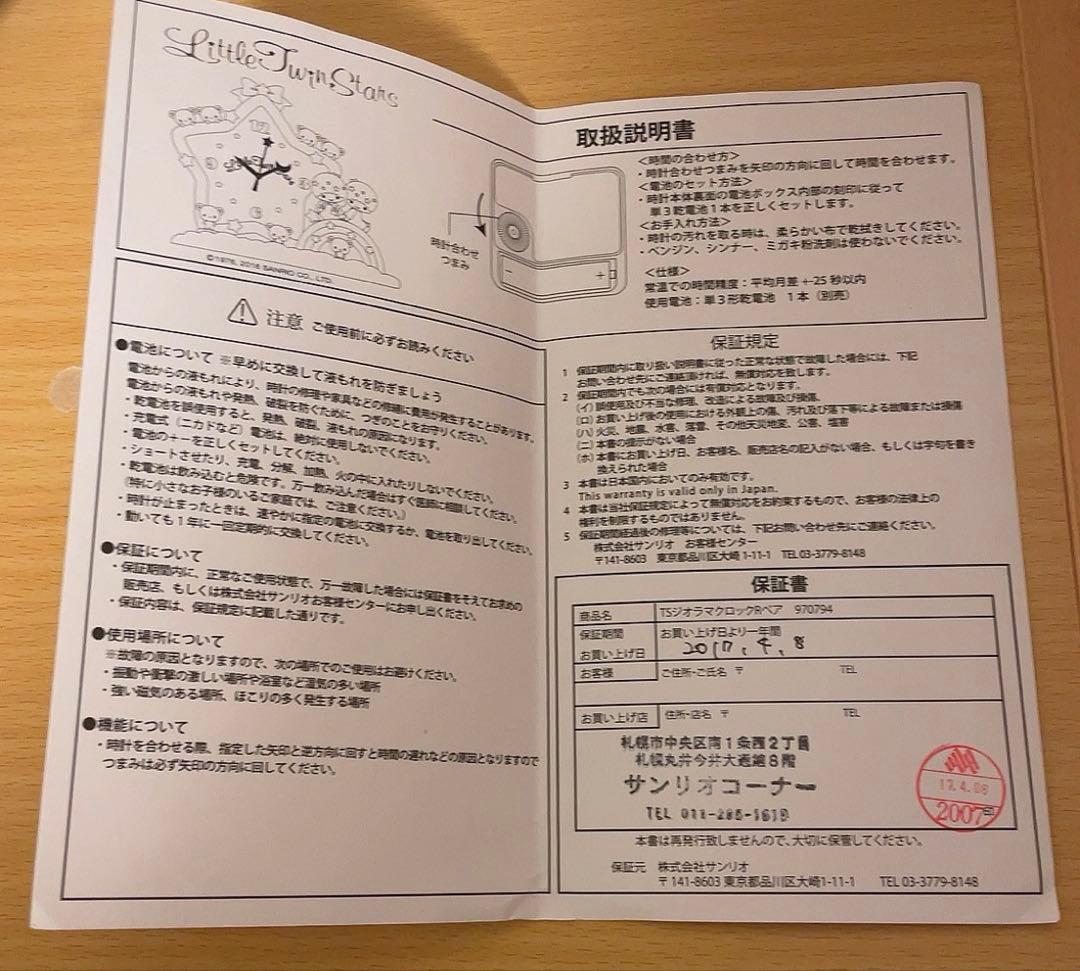 Little Twin Stars
©1976, 2016 SANRIO CO., LTD.
取扱説明書
時計合わせ
つまみ
<時間の合わせ方>
・時計合わせつまみを矢印の方向に回して時間を合わせます。
<電池のセット方法>
・時計本体裏面の電池ボックス内部の刻印に従って
単3乾電池1本を正しくセットします。
<お手入れ方法>
・時計の汚れを取る時は、柔らかい布で乾拭きしてください。
・ベンジン、シンナー、ミガキ粉洗剤は使わないでください。
<仕様>
常温での時間精度：平均月差+-25秒以内
使用電池：単3形乾電池 1本(別売)
注意 ご使用前に必ずお読みください
●電池について ※早めに交換して液もれを防ぎましょう
電池からの液もれにより、時計の修理や家具などの修繕に費用が発生することがあります。
電池からの液もれや発熱、破裂を防ぐために、つぎのことをお守りください。
・乾電池を誤使用すると、発熱、破裂、液もれの原因になります。
・充電式(ニカドなど)電池は、絶対に使用しないでください。
・電池の+-を正しくセットしてください。
・ショートさせたり、充電、分解、加熱、火の中に入れたりしないでください。
・乾電池は飲み込むと危険です。万一飲み込んだ場合はすぐ医師に相談してください。
(特に小さなお子様のいるご家庭では、ご注意ください。)
・時計が止まったときは、速やかに指定の電池に交換するか、電池を取り出してください。
・動いても1年に一回定期的に交換してください。
●保証について
・保証期間内に、正常なご使用状態で、万一故障した場合には保証書をそえてお求めの
販売店、もしくは株式会社サンリオお客様センターにお申し出ください。
・保証内容は、保証規定に記載した通りです。
●使用場所について
※故障の原因となりますので、次の場所でのご使用はお避けください。
・振動や衝撃の激しい場所や浴室など湿気の多い場所
・強い磁気のある場所、ほこりの多く発生する場所
●機能について
・時計を合わせる際、指定した矢印と逆方向に回すと時間の遅れなどの原因となりますので
つまみは必ず矢印の方向に回してください。
保証規定
1 保証期間内に取り扱い説明書に従った正常な状態で故障した場合には、下記
お問い合わせ先にご連絡頂ければ、無償対応を致します。
2 保証期間内でも次の場合には有償対応となります。
(イ)誤使用及び不当な修理、改造による故障及び損傷
(ロ)お買い上げ後の使用における外観上の傷、汚れ及び落下等による故障または損傷
(ハ)火災、地震、水害、落雷、その他天災地変、公害、塩害
(ニ)本書の提示がない場合
(ホ)本書にお買い上げ日、お客様名、販売店名の記入がない場合、もしくは字句を書き
換えられた場合
3 本書は日本国内においてのみ有効です。
This warranty is valid only in Japan.
4 本書は当社保証規定によって無償対応をお約束するもので、お客様の法律上の
権利を制限するものではありません。
5 保証期間経過後の修理等については、下記お問い合わせ先にご連絡ください。
株式会社サンリオ お客様センター
〒141-8603 東京都品川区大崎 1-11-1 TEL 03-3779-8148
保証書
商品名 TSジオラマクロックRベア 970794
保証期間 お買い上げ日より一年間
お買い上げ日 2017, 4, 8
お客様 ご住所・ご氏名 〒 TEL
お買い上げ店 住所・店名 〒 TEL
札幌市中央区南1条西2丁目
札幌丸井今井大通館8階
サンリオコーナー
TEL 011-285-1619
17.4.08
2007
本書は再発行致しませんので、大切に保管してください。
保証元 株式会社サンリオ
〒141-8603 東京都品川区大崎1-11-1 TEL 03-3779-8148